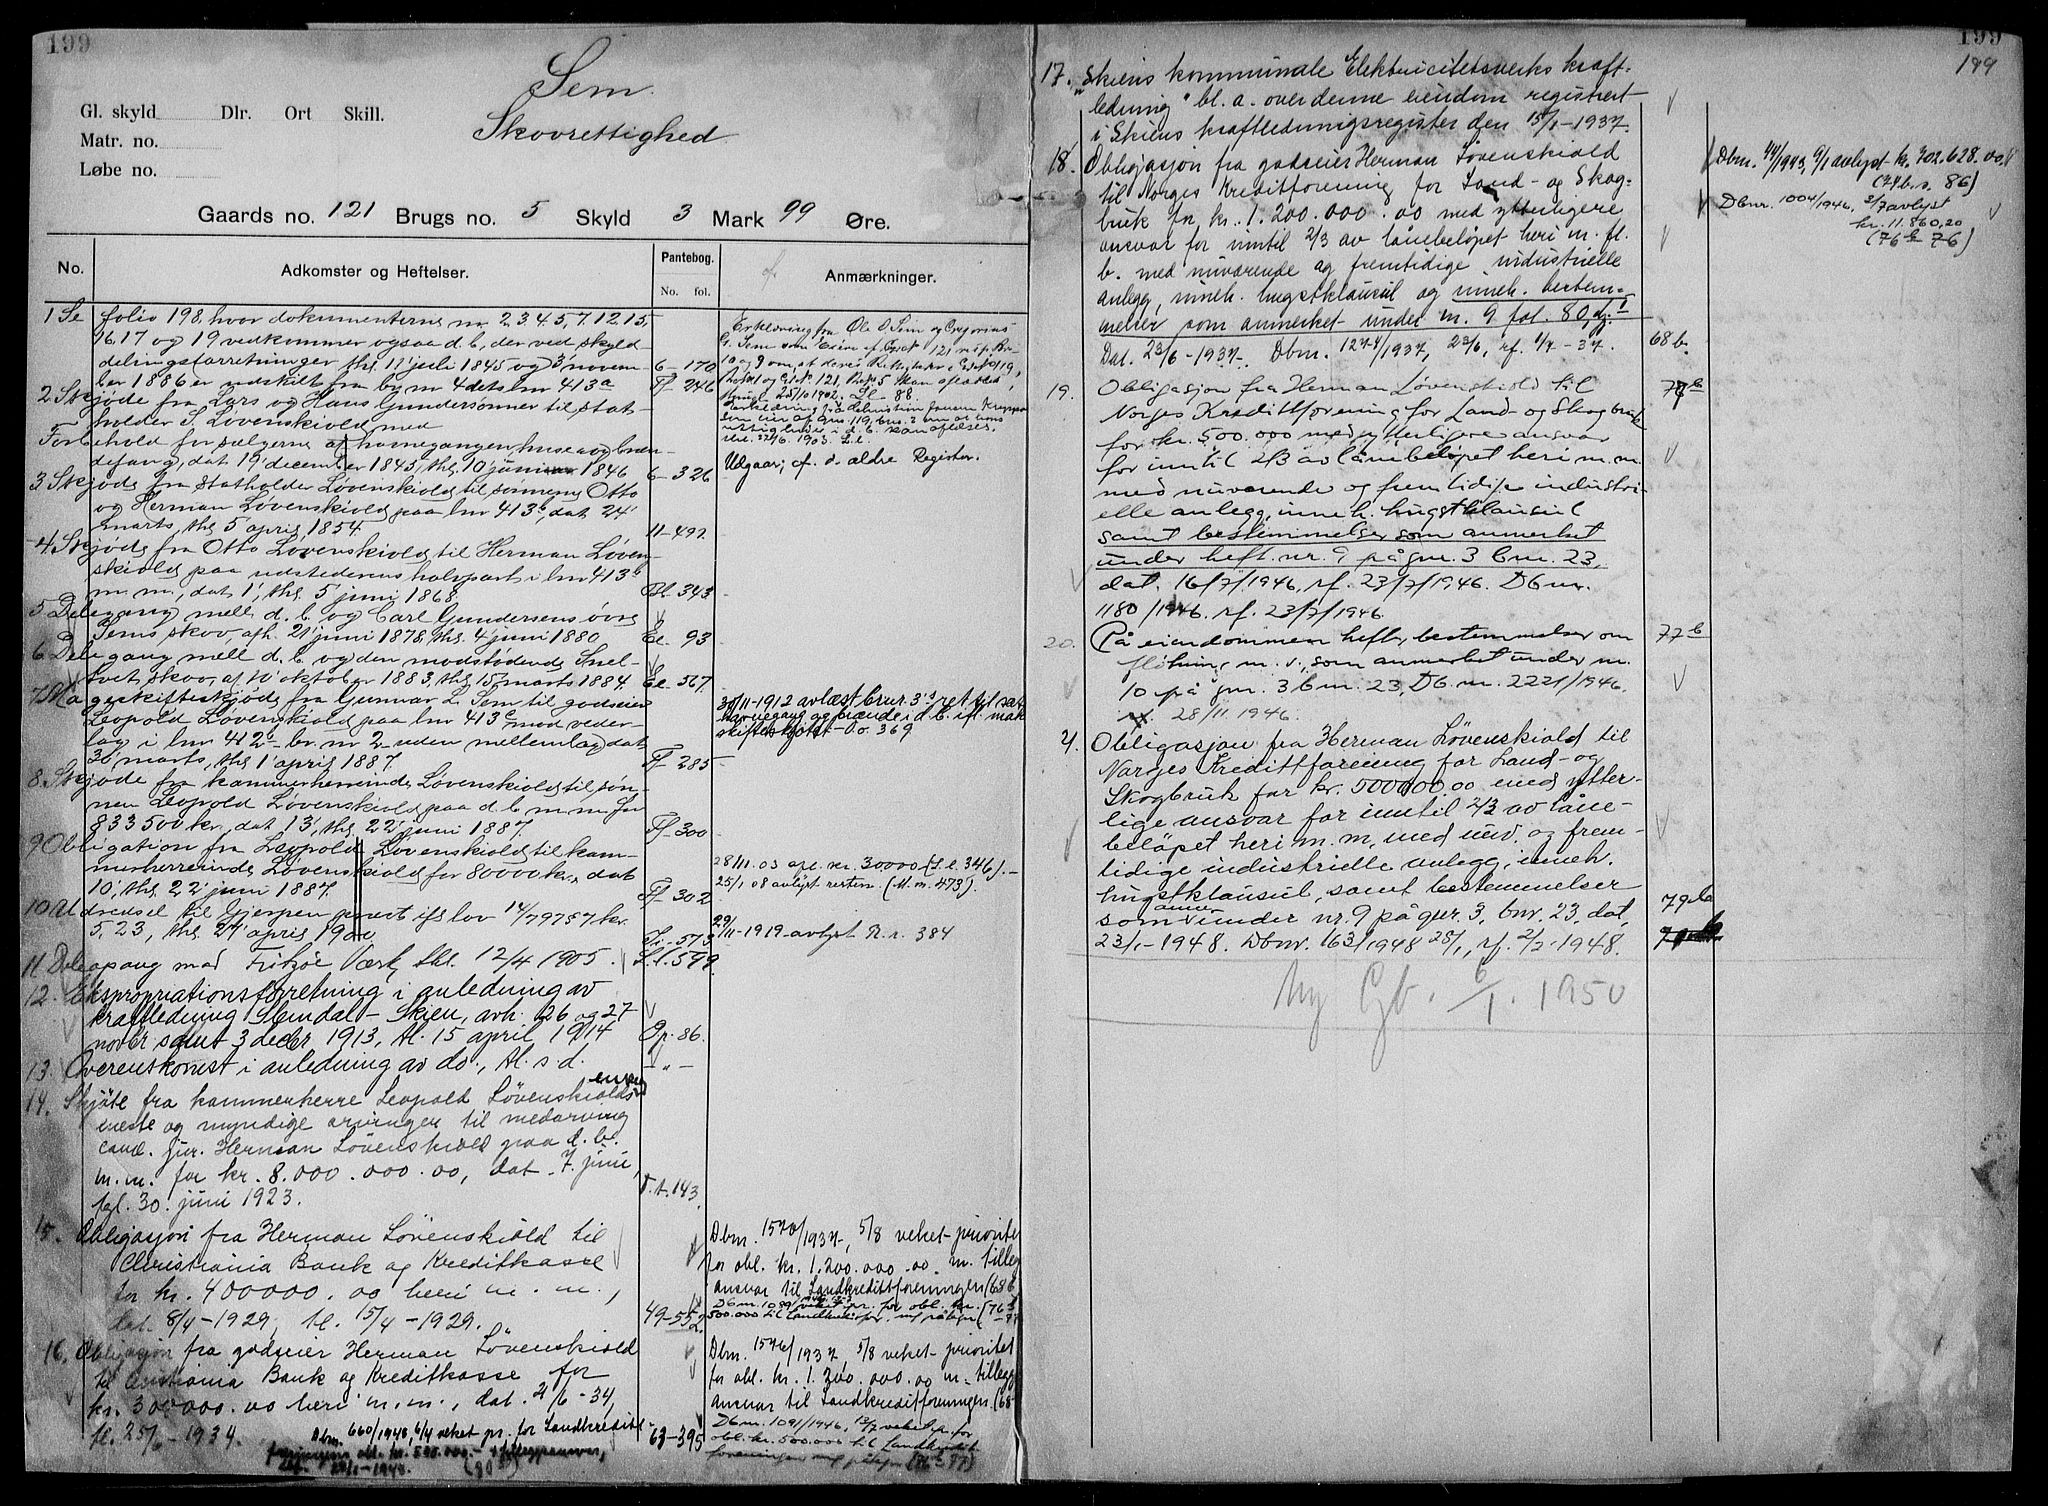 199
Sem.
Skovrettighed
Gl. skyld Dlr. Ort Skill.
Matr. no.
Løbe no.
Gaards no. 121 Brugs no. 5 Skyld 3 Mark 99 Øre.
No. Adkomster og Heftelser. Pantebog. No. fol. Anmærkninger.
1 Se folio 198, hvor dokumenterne nr 2, 3, 4, 5, 7, 12, 15,
16, 17 og 19 vedkommer ogsaa d. b., der ved skyld-
delingsforretninger thl. 11' juli 1845 og 3' novem- 6-170
ber 1886 er udskilt fra br nr 4 dets lnr 413a Ff 246
2 Skjøde fra Lars og Hans Gundersønner til stat-
holder S. Løvenskiold med
Forbehold for sælgerne af havnegangen, huse og bræn-
defang, dat 19' december 1845, thl. 10' januar 1846 6-326
3 Skjøde fra statholder Løvenskiold til sønnerne Otto
og Herman Løvenskiold paa lnr 413b, dat 24'
marts, thl. 5' april 1854. 11-492
4 Skjøde fra Otto Løvenskiold til Herman Løven-
skiold paa udstederens halvpart i lnr 413b
m. m., dat 1', thl. 5' juni 1868. Bl. 343
5 Delegang mell d. b. og Carl Gundersens øvre
Sems skov, afh. 21' juni 1878, thl. 4' juni 1880 Ee 93
6 Delegang mell d. b. og den modstødende Snel-
tvet, skov, af 10' oktober 1883, thl. 15' marts 1884. Ee 567.
7 Mageskifteskjøde fra Gunnar L. Sem til godseier
Leopold Løvenskiold paa lnr 413c mod veder-
lag i lnr 412b br. nr 2 uden mellemlag dat
30' marts, thl. 1' april 1887. Ff 285
8 Skjøde fra kammerherreinde Løvenskiold til søn-
nen Leopold Løvenskiold paa d. b. m. m. for
833500 kr., dat 13', thl. 22' juni 1887. Ff 300
9 Obligation fra Leopold Løvenskiold til kam-
merherreinde Løvenskiold for 80000 kr., dat
10', thl. 22' juni 1887. Ff 302
10 Udredsel til Gjerpen præst ifl lov 14/7 97 57 kr.
5,23, thl. 27' april 1900
11 Delegang med Fritzøe Værk, thl. 12/4 1905. L.l. 599.
12. Ekspropriationsforretning i anledning av
kraftledning Slemdal - Skien, avh. 26 og 27
novbr samt 3 decbr 1913, tl. 15 april 1914 O.p. 86.
13. Overenskomst i anledning av do., tl. s. d. -"-
14. Skjøte fra kammerherre Leopold Løvenskiolds enke
eneste og myndige arvinger til medarving
cand. jur. Herman Løvenskiold paa d. br.
m. m. for kr. 8.000.000.00, dat. 7. juni,
tgl. 30. juni 1923. T.t. 143
15. Obligasjon fra Herman Løvenskiold til
Christiania Bank og Kreditkasse
for kr. 400000.00 heri m. m.,
dat. 8/4-1929, tl. 15/4-1929. 49-552.
16. Obligasjon fra godseier Herman Løvenskiold
til Cristiania Bank og Kreditkasse for
kr. 300000.00 heri m. m., dat. 21/6-34,
tl. 25/6-1934. 63-395
Dbnr. 660/1948 6/4 veket pr. for Landkreditt-
foreningens obl. kr. 500.000.- + tilleggsansvar,
Erklæring fra Ole O Sem og Gregorius
G. Sem som Eiere af Gaard 121 resp. Br-
Udgaar; cf. d. ældre Register.
30/11-1912 avlæst brnr 3's ret til sæt
havnegang og brænde i d. b. ifl. mak
skifteskjøte O.o. 369
28/11 03 afl. kr. 30000 (L.l. 346).-
25/1 08 avlyst resten. (M. m. 473).
29/11-1919 avlyst R. r. 384
Dbnr. 1570/1937, 5/8 veket prioritet
for obl. kr. 1.200.000.00 m. tillegg
ansvar til Landkredittforeningen (68b
500.000 til Landkredittfor.
Dbnr. 1576/1937 5/8 veket prioritet
for obl. kr. 1.200.000.00 m. tillegg
ansvar til Landkreditforeningen. (68
Dbnr. 1091/1946, 12/7 veket pr. for
obl. kr. 500.000 til Landkreditt
199
199
17. "Skiens kommunale Elektricitetsverks kraft-
ledning" bl. a. over denne eiendom registrert
i Skiens kraftledningsregister den 15/1-1937.
18. Obligasjon fra godseier Herman Løvenskiold
til Norges Kreditforening for Land- og Skog-
bruk for kr. 1.200.000.00 med ytterligere
ansvar for inntil 2/3 av lånebeløpet heri m. fl.
b. med nuværende og fremtidige industrielle
anlegg, inneh. hugstklausul og inneh. bestem-
melser som anmerket under nr. 9 fol. 80, dg. I
Dat. 23/6-1937. Dbnr. 1274/1937, 23/6, rf. 1/7-37. 68b.
19. Obligasjon fra Herman Løvenskiold til
Norges Kredittforening for Land- og Skogbruk
for kr. 500.000 med ytterligere ansvar
for inntil 2/3 av lånebeløpet heri m. m.
med nuværende og fremtidige industri-
elle anlegg, inneh. hugstklausul
samt bestemmelser som anmerket
under heft. nr. 9 på gnr. 3 bnr. 23,
dat. 16/7/1946, rf. 23/7/1946. Dbnr.
1180/1946, rf. 23/7/1946.
20. På eiendommen hefter bestemmelser om
fløtning m. v., som anmerket under nr.
10 på gnr. 3 bnr. 23, Db. nr. 2221/1946.
rf. 28/11 1946. 77b
21. Obligasjon fra Herman Løvenskiold til
Norges Kredittforening for Land- og
Skogbruk for kr. 500000.00 med ytter-
lige ansvar for inntil 2/3 av låne-
beløpet heri m. m, med nuv. og frem-
tidige industrielle anlegg, inneh.
hugstklausul, samt bestemmelser
som anmer under nr. 9 på gnr. 3, bnr. 23, dat,
23/1-1948. Dbnr. 163/1948 28/1, rf. 2/2-1948.
Ny Gb. 6/1. 1950
Dbnr. 44/1943, 6/1 avlyst kr. 302.628.00
(74b s. 86)
Dbnr. 1004/1946, 2/7 avlyst
kr. 11.860,20
(76b 76)